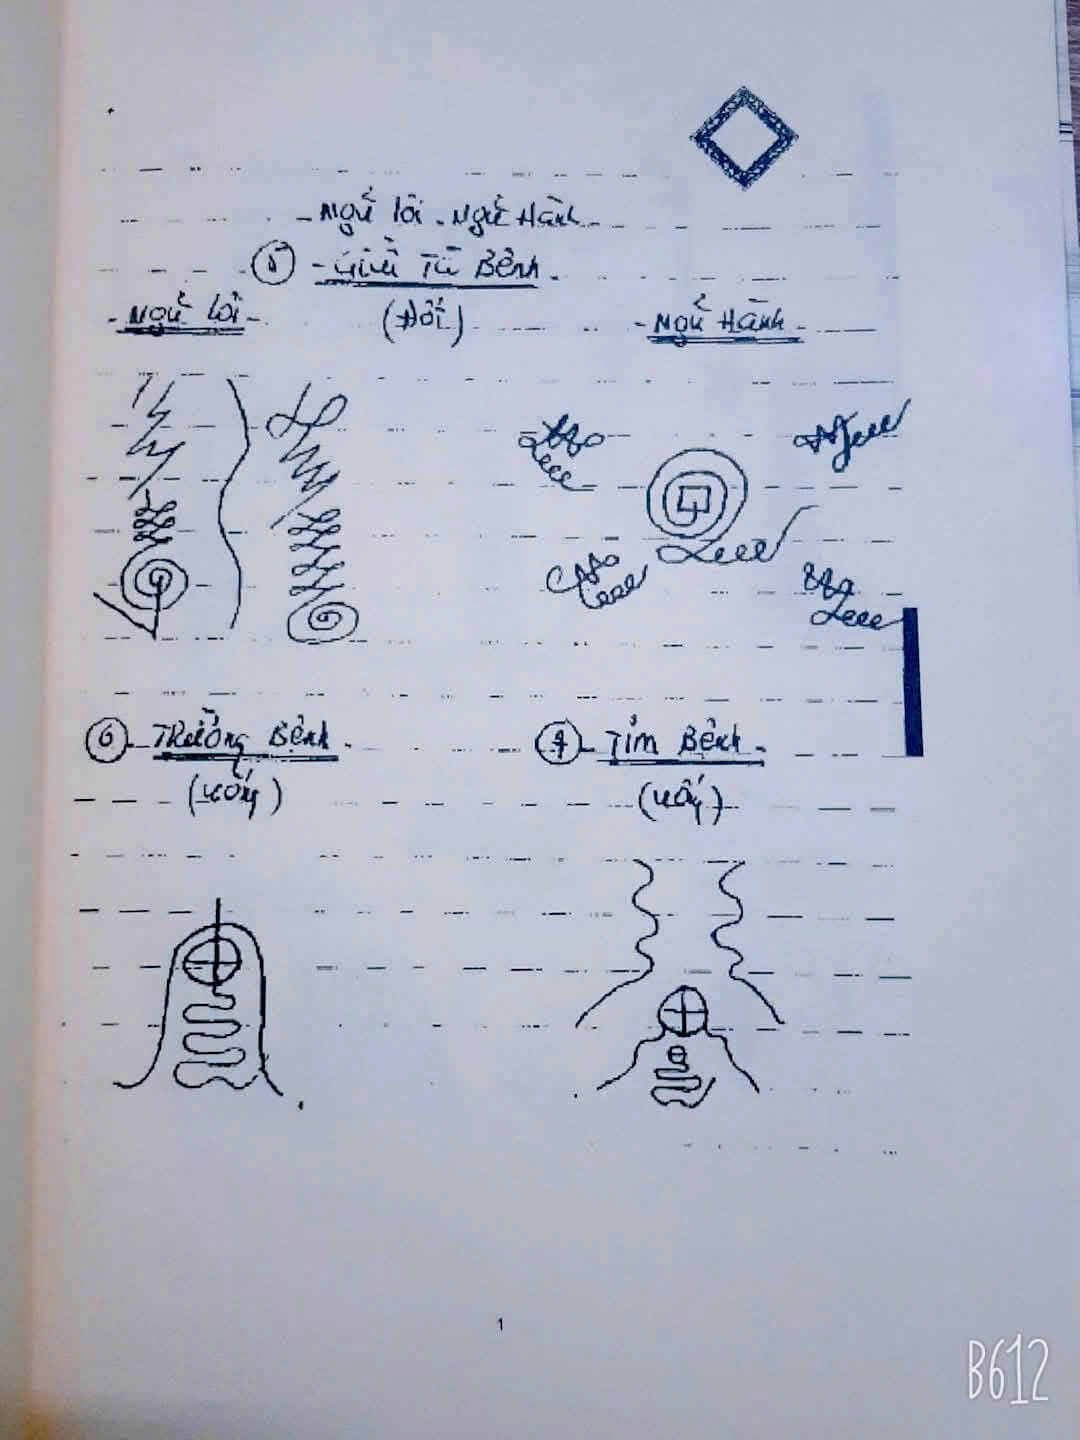 - Ngũ lôi - Ngũ Hành -
⑤ - Giải Tà Bệnh -
- Ngũ lôi -
(Đốt)
- Ngũ Hành -
⑥ - Trưởng Bệnh -
(uống)
- Tim Bệnh -
1
B612